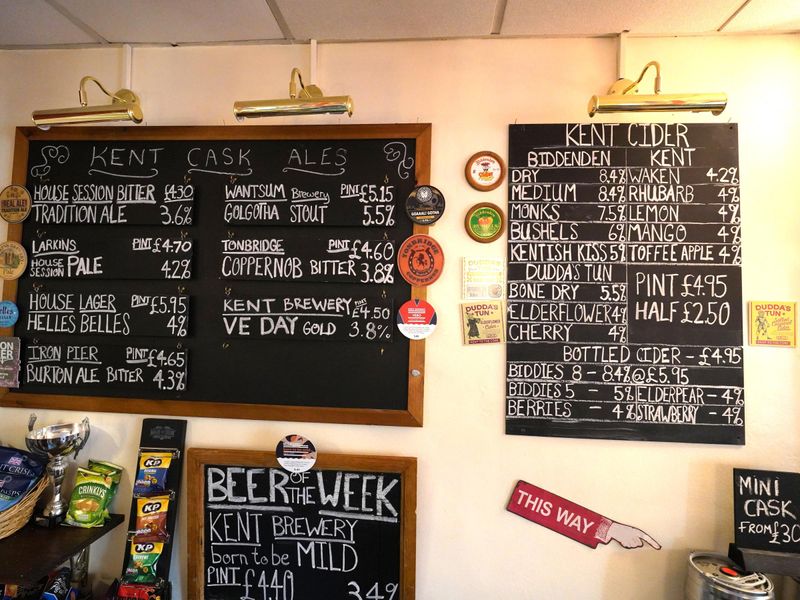 KENT CASK ALES
HOUSE SESSION BITTER £4.30
TRADITION ALE 3.6%
LARKINS PINT £4.70
HOUSE SESSION PALE 4.2%
HOUSE LAGER PINT £5.95
HELLES BELLES 4%
IRON PIER PINT £4.65
BURTON ALE BITTER 4.3%
WANTSUM Brewery PINT £5.15
GOLGOTHA STOUT 5.5%
TONBRIDGE PINT £4.60
COPPERNOB BITTER 3.8%
KENT BREWERY PINT £4.50
VE DAY GOLD 3.8%
KENT CIDER
BIDDENDEN
DRY 8.4%
MEDIUM 8.4%
MONKS 7.5%
BUSHELS 6%
KENTISH KISS 5%
DUDDA'S TUN
BONE DRY 5.5%
ELDERFLOWER 4%
CHERRY 4%
KENT
WAKEN 4.2%
RHUBARB 4%
LEMON 4%
MANGO 4%
TOFFEE APPLE 4%
PINT £4.95
HALF £2.50
BOTTLED CIDER - £4.95
BIDDIES 8 - 8.4% @ £5.95
BIDDIES 5 - 5% ELDERPEAR - 4%
BERRIES - 4% STRAWBERRY - 4%
BEER OF THE WEEK
KENT BREWERY
born to be MILD
PINT £4.40 3.4%
THIS WAY
MINI
CASK
FROM £30
DUDDA'S
TUN
DUDDA'S
TUN
TONBRIDGE
COPPERNOB
KP
KP
KP